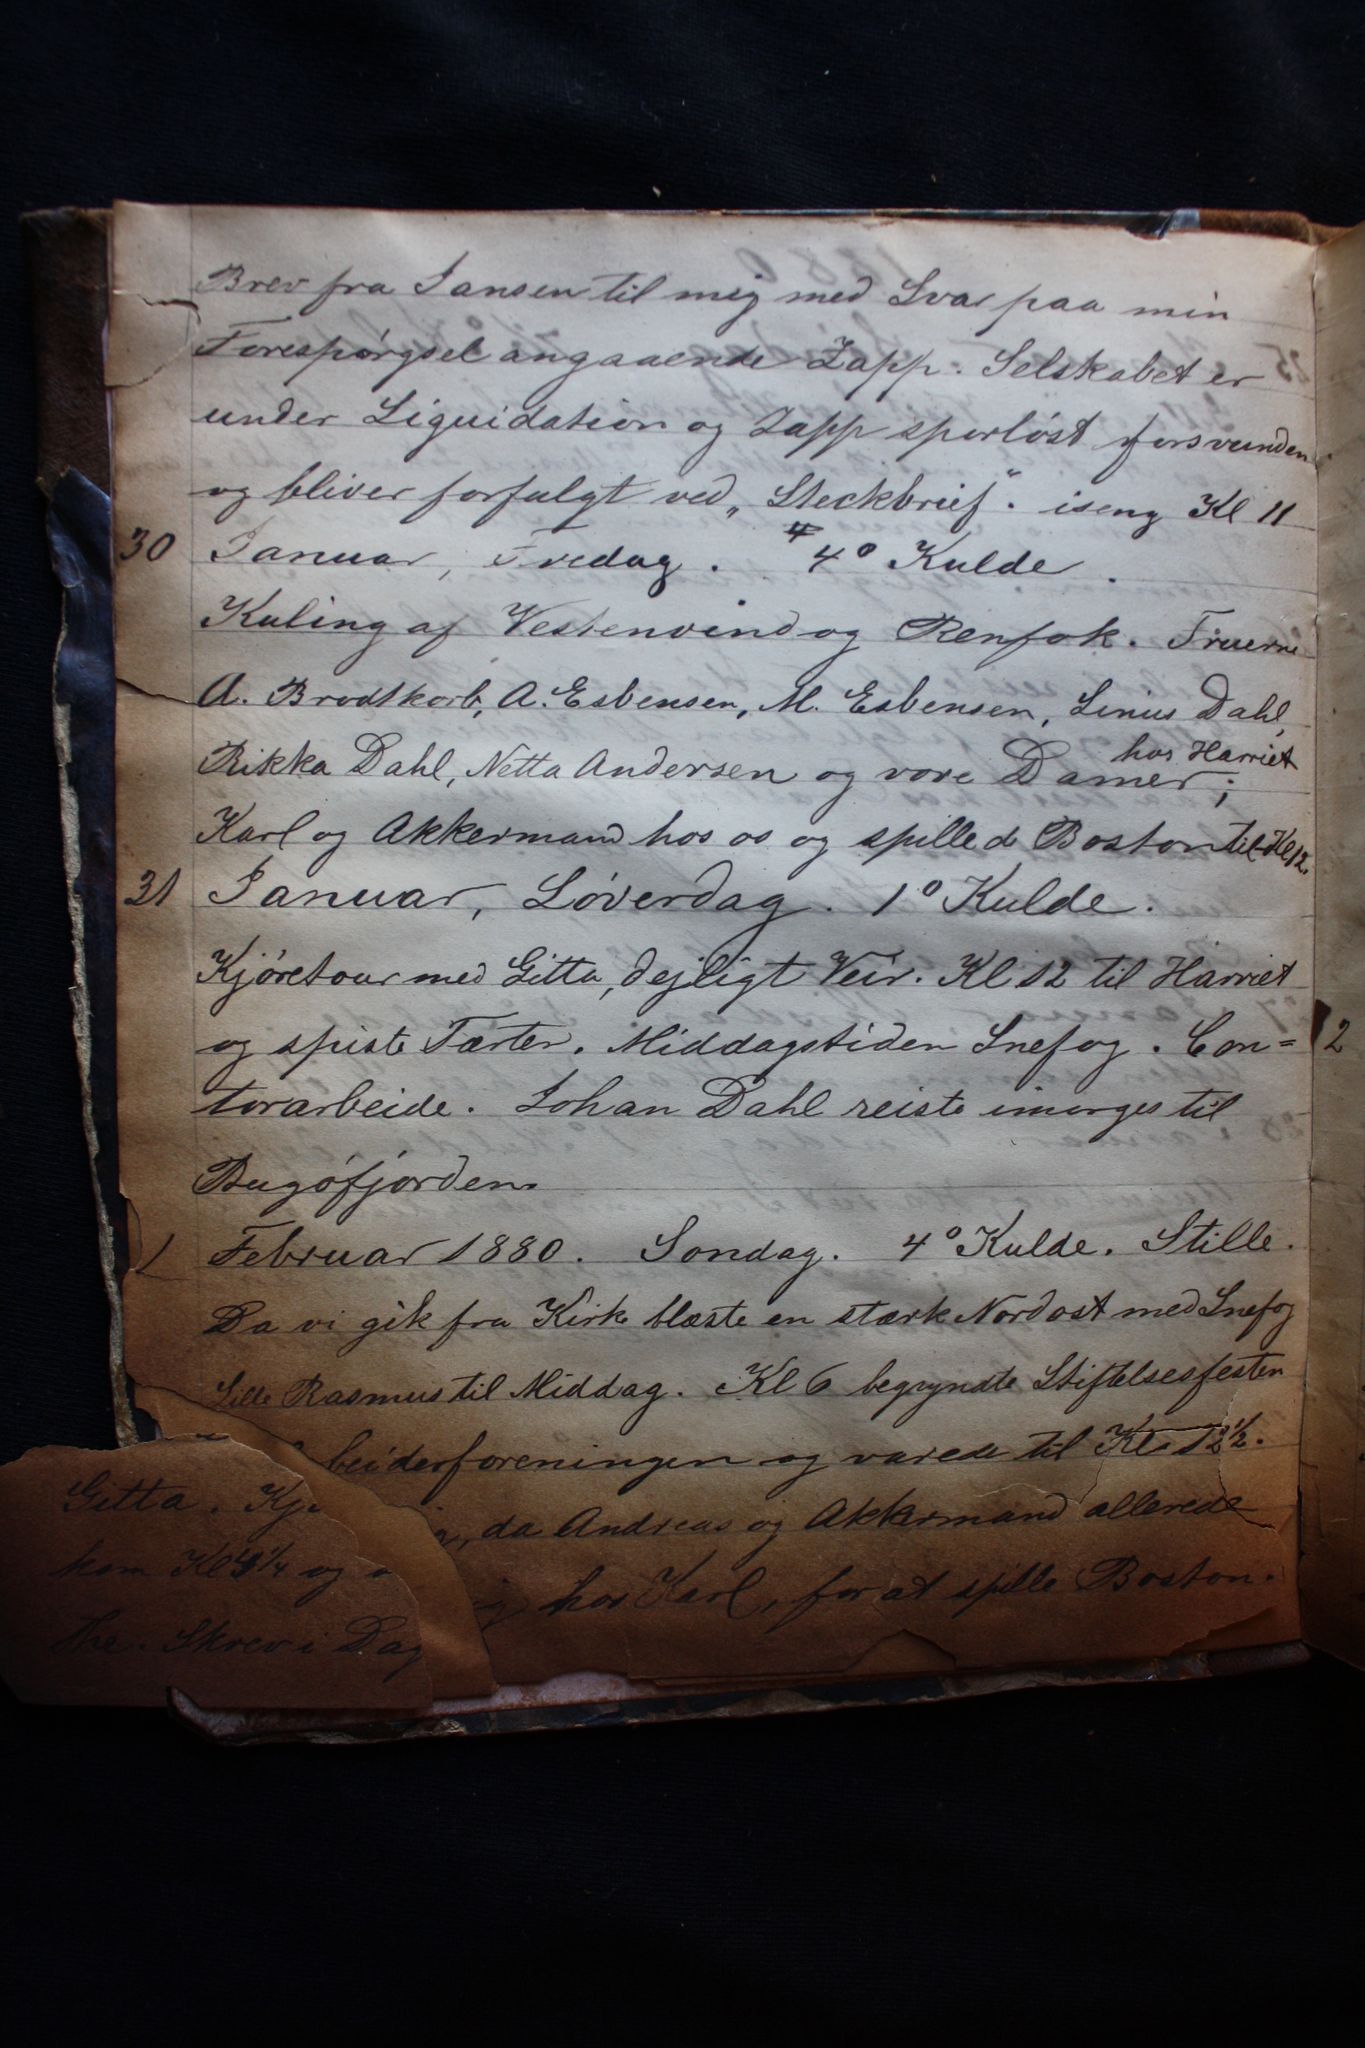 Brev fra Jansen til mig med Svar paa min
Forespørgsel angaaende Zapp. Selskabet er
under Liquidation og Zapp sporløst forsvunden
og bliver forfulgt ved „Steckbrief“. iseng Kl 11
30 Januar, Fredag. 4° Kulde.
Kuling af Vestenvind og Renfok. Fruerne
A. Brodtkorb, A. Esbensen, M. Esbensen, Linius Dahl,
Rikka Dahl, Netta Andersen og vore Damer hos Harriet;
Karl og Akkermand hos os og spillede Boston til Kl 12.
31 Januar, Løverdag. 1° Kulde.
Kjøretour med Gitta, dejligt Veir. Kl 12 til Harriet
og spiste Tærter. Middagstiden Snefog. Con=
torarbeide. Johan Dahl reiste imorges til
Bugøfjorden.
1 Februar 1880. Søndag. 4° Kulde. Stille.
Da vi gik fra Kirke blæste en stærk Nordost med Snefog
Lille Rasmus til Middag. Kl 6 begyndte Stiftelsesfesten
beiderforeningen og varede til Kl. 12 1/2.
, da Andreas og Akkermand allerede
hos Karl, for at spille Boston.
Gitta. Kj
kom Kl 9 1/4 og
The. Skrev i Dag
2